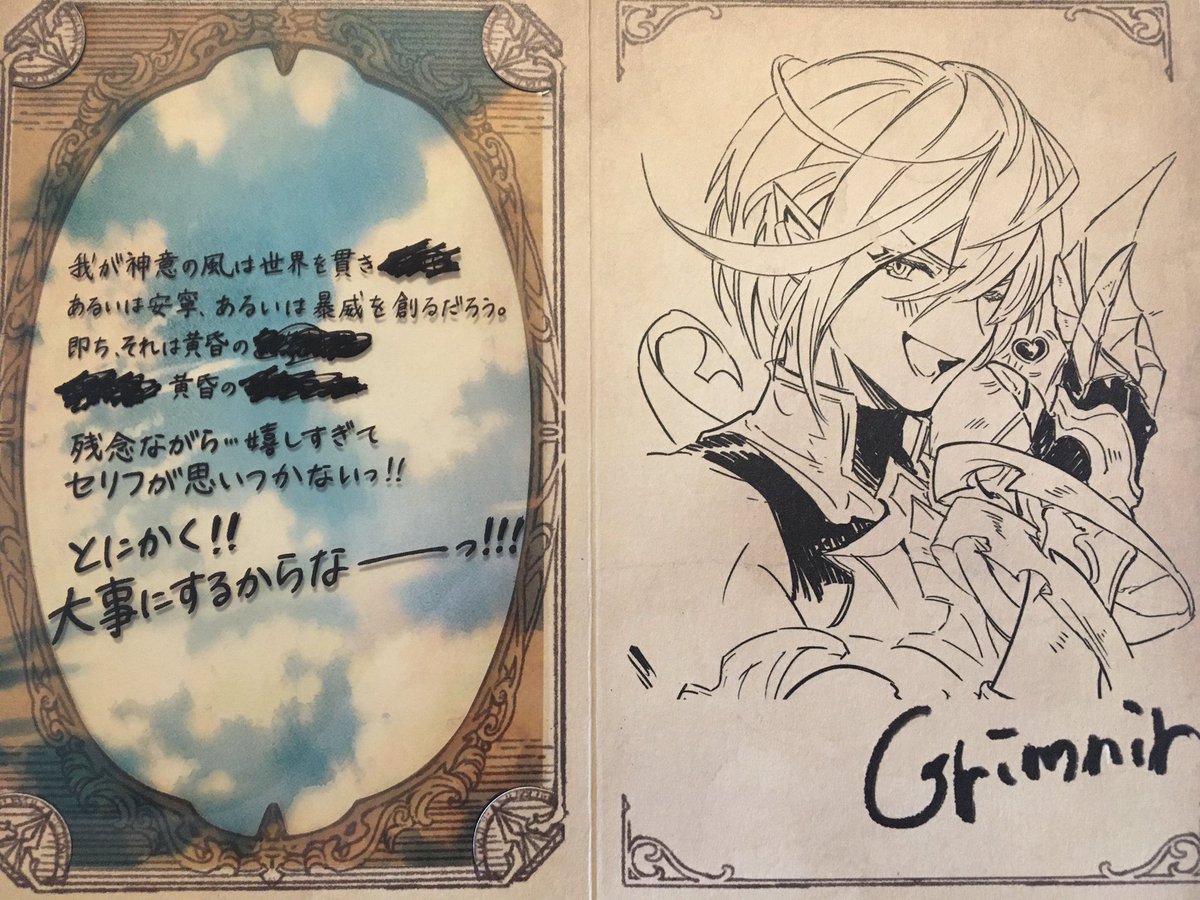 我が神意の風は世界を貫き
あるいは安寧、あるいは暴威を創るだろう。
即ち、それは黄昏の
黄昏の
残念ながら…嬉しすぎて
セリフが思いつかないっ!!
とにかく!!
大事にするからなーーっ!!!
Grimnir